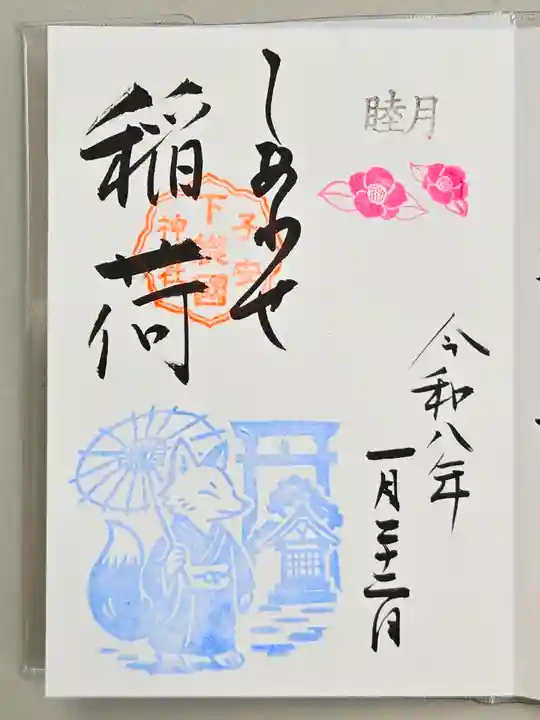 睦月
令和八年
一月二十二日
しあわせ
稲荷
子安
下総國
神社